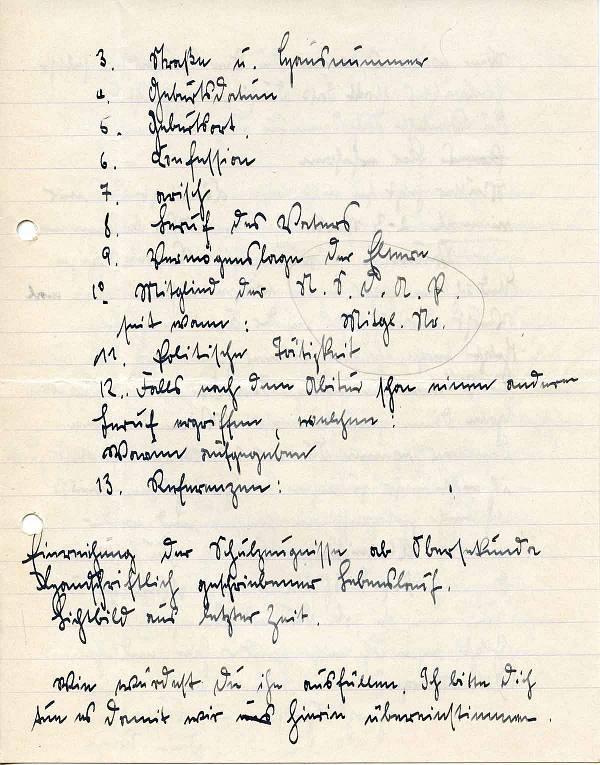 3. Straße u. Hausnummer
4. Geburtsdatum
5. Geburtsort.
6. Konfession
7. arisch
8. Beruf des Vaters
9. Vermögenslage der Eltern
10 Mitglied der N. S. D. A. P.
seit wann: Mitgl. No.
11. Politische Tätigkeit
12. Falls nach dem Abitur schon einen anderen
Beruf ergriffen, welchen:
Warum aufgegeben
13. Referenzen:
Einreichung der Schulzeugnisse ab Obersekunda
Handschriftlich geschriebener Lebenslauf.
Lichtbild aus letzter Zeit.
Wie würdest Du ihn ausfüllen. Ich bitte Dich
tun es damit wir uns hierin übereinstimmen.